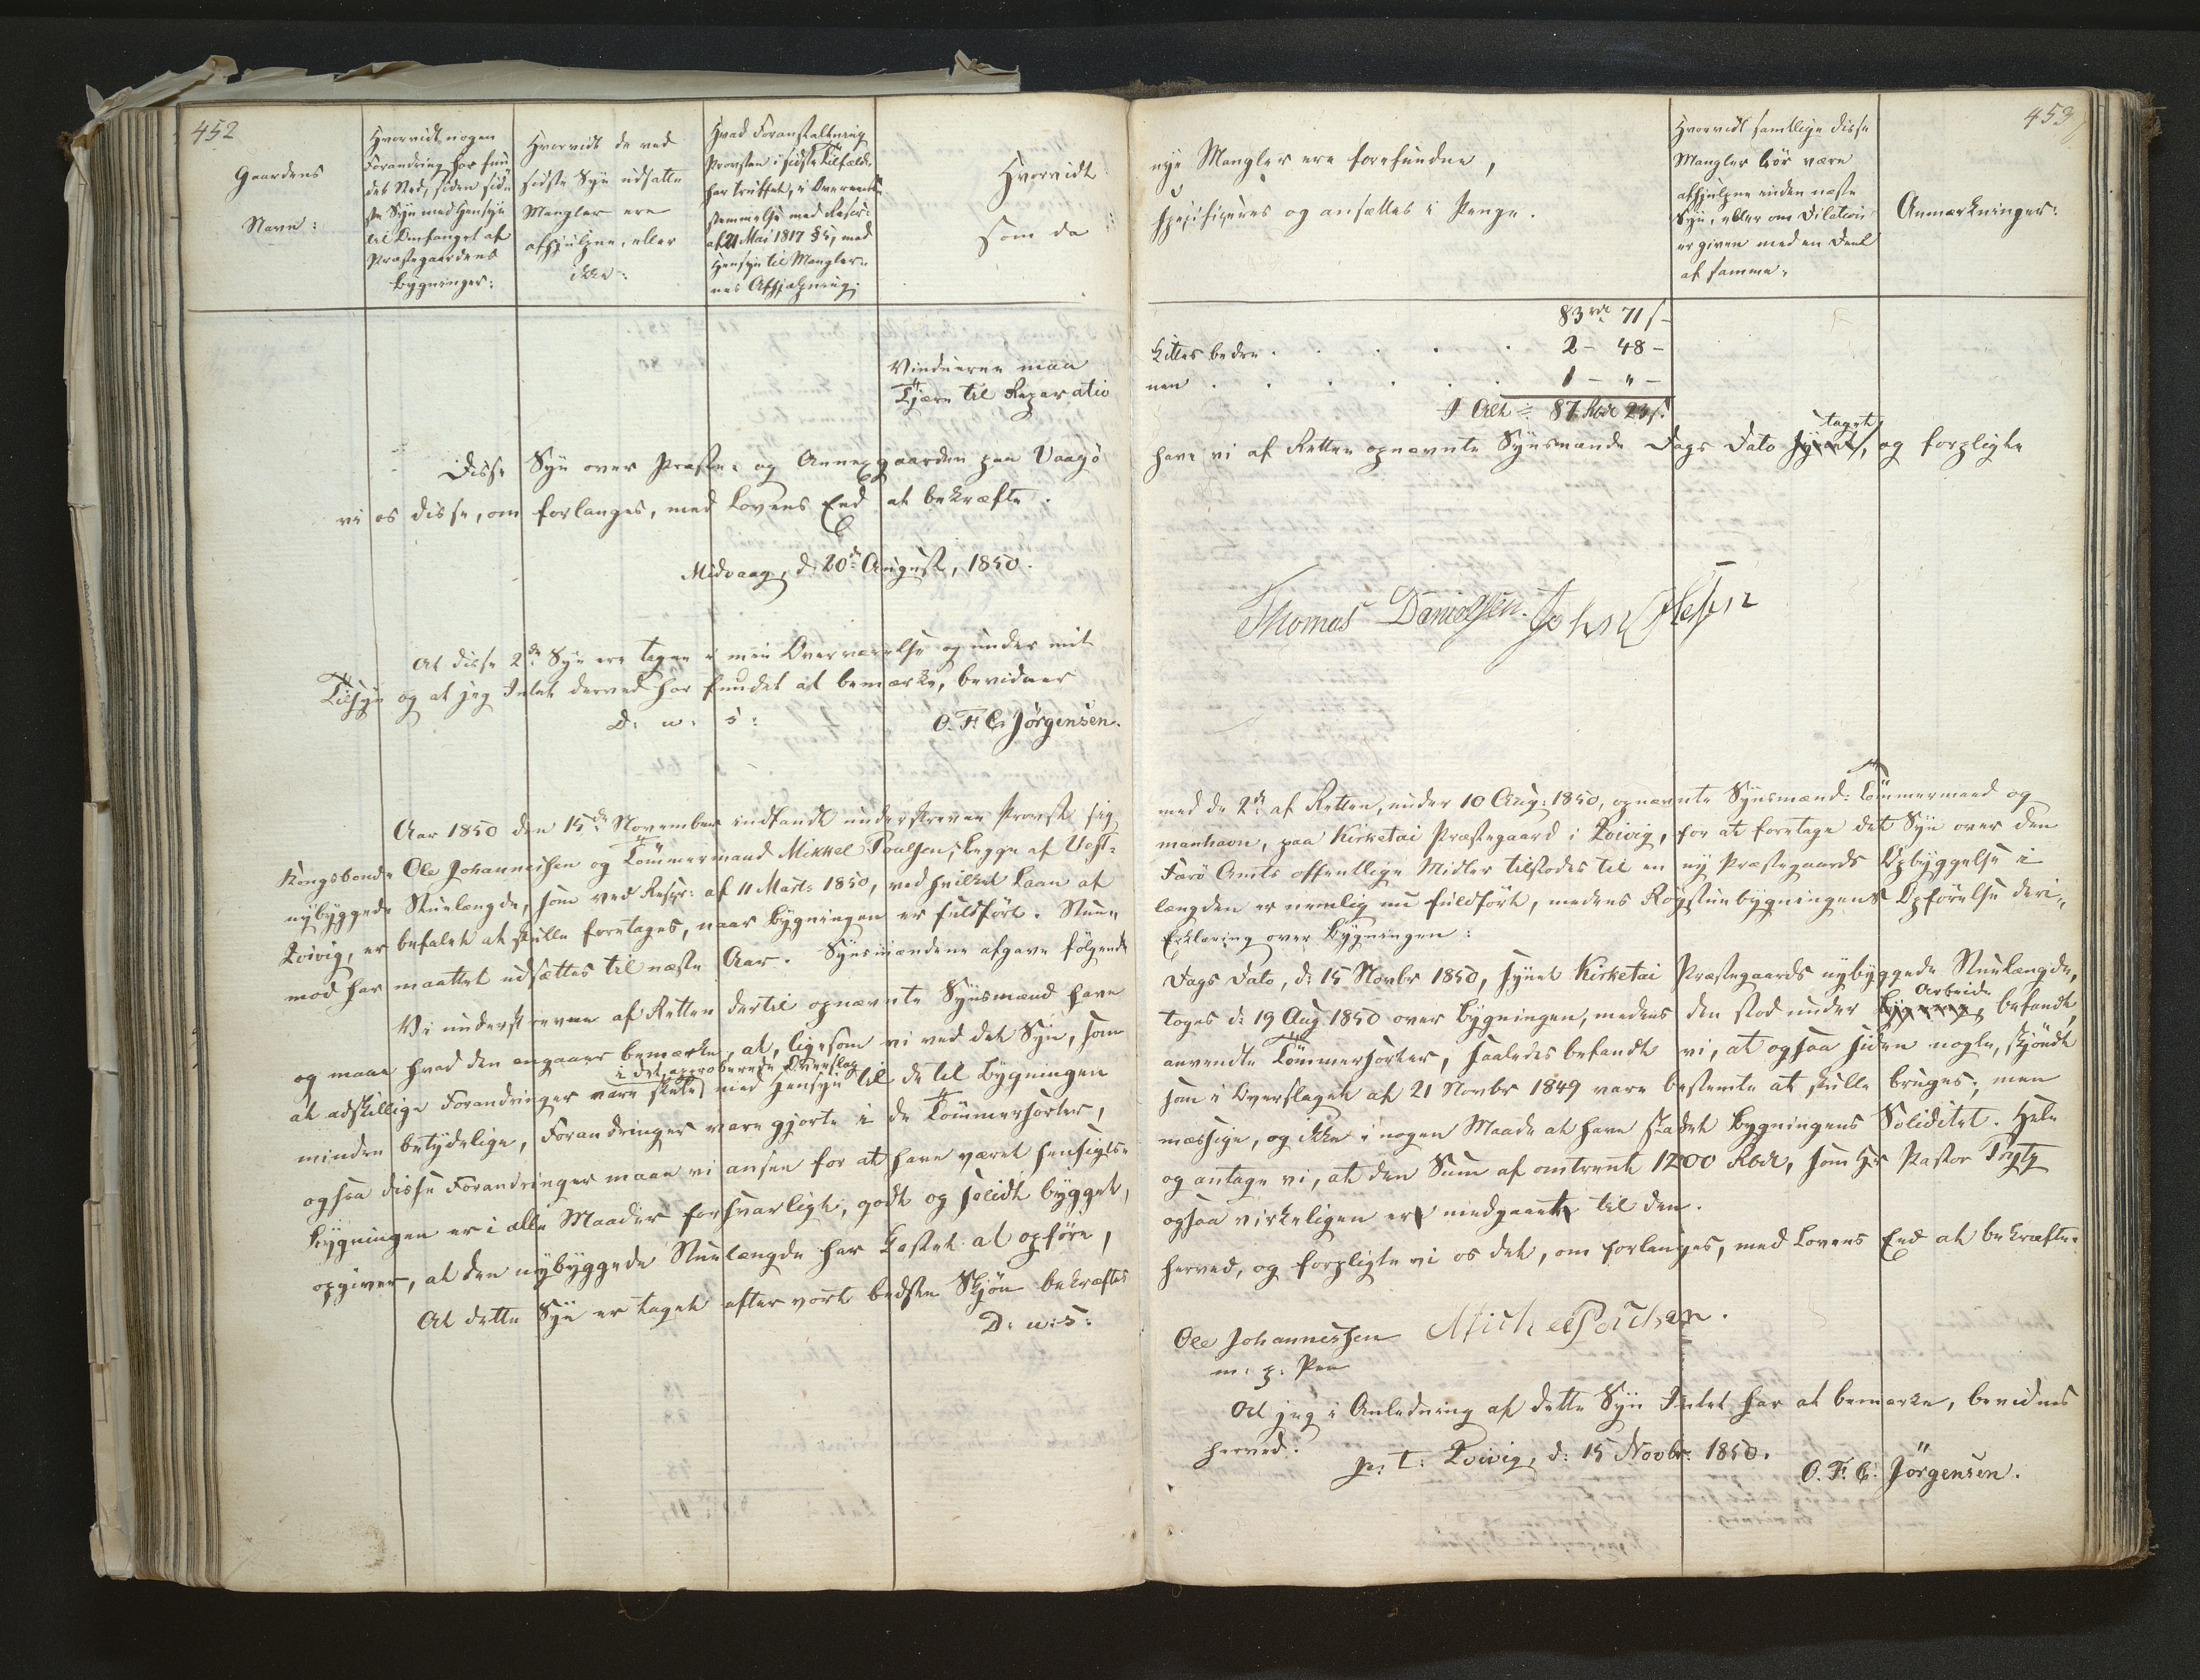 452
Gaardens
Navn:
Hvorvidt nogen
Forandring har fun
det Sted, siden sid-
ste Syn med Hensyn
til Omfanget af
Præstegaardens
Bygninger:
Hvorvidt de ved
sidste Syn udsatte
Mangler ere
afhjulpne, eller
ikke:
Hvad Foranstaltning
Provsten i sidste Tilfælde
har truffet, i Overeens-
stemmelse med Rescr:
af 21 Mai 1817 § 5, med
Hensyn til Mangler-
nes Afhjelpning:
Hvorvidt
som da
Vinduerne maa
Tjære til Reparatio
Disse Syn over Præste- og Annexgaarden paa Vaagö
vi os disse, om forlanges, med Lovens Eed at bekræfte.
Midvaag, d: 20de August, 1850.
At disse 2de Syn ere tagne i min Overværelse og under mit
Tilsyn og at jeg Intet derved har fundet at bemærke, bevidner
D: u: s:
O. F. C. Jörgensen.
Aar 1850 den 15de November indfandt underskrevne Provst sig
Kongsbonde Ole Johannesen og Tömmermand Mikkel Poulsen, begge af Vest-
nybyggede Stuelængde, som ved Rescr: af 11 Marts 1850, ved hvilket Laan af
Qvivig, er befalet at skulle foretages, naar Bygningen er fuldført. Stue-
mod har maattet udsættes til næste Aar. Synsmændene afgave følgende
Vi underskrevne af Retten dertil opnævnte Synsmænd have
og maae hvad den angaaer bemærke, at, ligesom vi ved det Syn, som
i det approberede Overslag
at adskillige Forandringer vare skete med Hensyn til de til Bygningen
minder betydelige, Forandringer vare gjorte i de Tömmersorter,
ogsaa disse Forandringer maae vi ansee for at have været hensigts-
Bygningen er i alle Maader forsvarligt, godt og solidt bygget,
opgiver, at den nybyggede Stuelængde har kostet at opföre,
At dette Syn er taget efter vort bedste Skjön bekræftes
D: u: s:
453
nye Mangler ere forefundne,
specificeres og ansættes i Penge.
Hvorvidt samtlige disse
Mangler bör være
afhjulpne inden næste
Syn, eller om Dilation
er given med en Deel
af samme.
Anmærkninger:
83 rd 71 s
kittes bedre . . . . . 2 - 48 -
nen . . . . . . 1 - " -
I Alt = 87 Rbd 23 s.
taget
have vi af Retten opnævnte Synsmænde Dags Dato , og forpligte
Thomas Danielsen. John
med de 2de af Retten, under 10 Aug: 1850, opnævnte Synsmænd: Tömmermand og
manhavn, paa Kirketai Præstegaard i Qvivig, for at foretage det Syn over den
Færö Amts offentlige Midler tilstodes til en ny Præstegaards Opbyggelse i
længden er nemlig nu fuldfört, medens Røgstuebygningens Opförelse deri-
Erklæring over Bygningen:
Dags Dato, d: 15 Novbr 1850, synet Kirketai Præstegaards nybyggede Stuelængde,
Arbeide
toges d: 19 Aug 1850 over Bygningen, medens den stod under befandt,
anvendte Tömmersorter, saaledes befandt vi, at ogsaa siden nogle, skjöndt
som i Overslaget af 21 Novbr 1849 vare bestemte at skulle bruges; men
mæssige, og ikke i nogen Maade at have skadet Bygningens Soliditet. Hele
og antage vi, at den Sum af omtrent 1200 Rbd, som Hr Pastor
ogsaa virkeligen er medgaaet til den.
herved, og forpligte vi os det, om forlanges, med Lovens Eed at bekræfte.
Ole Johannesen Michel Poulsen.
m: p: Pen
At jeg i Anledning af dette Syn Intet har at bemærke, bevidnes
herved.
p: t: Qvivig, d: 15 Novbr: 1850.
O. F. C. Jörgensen.